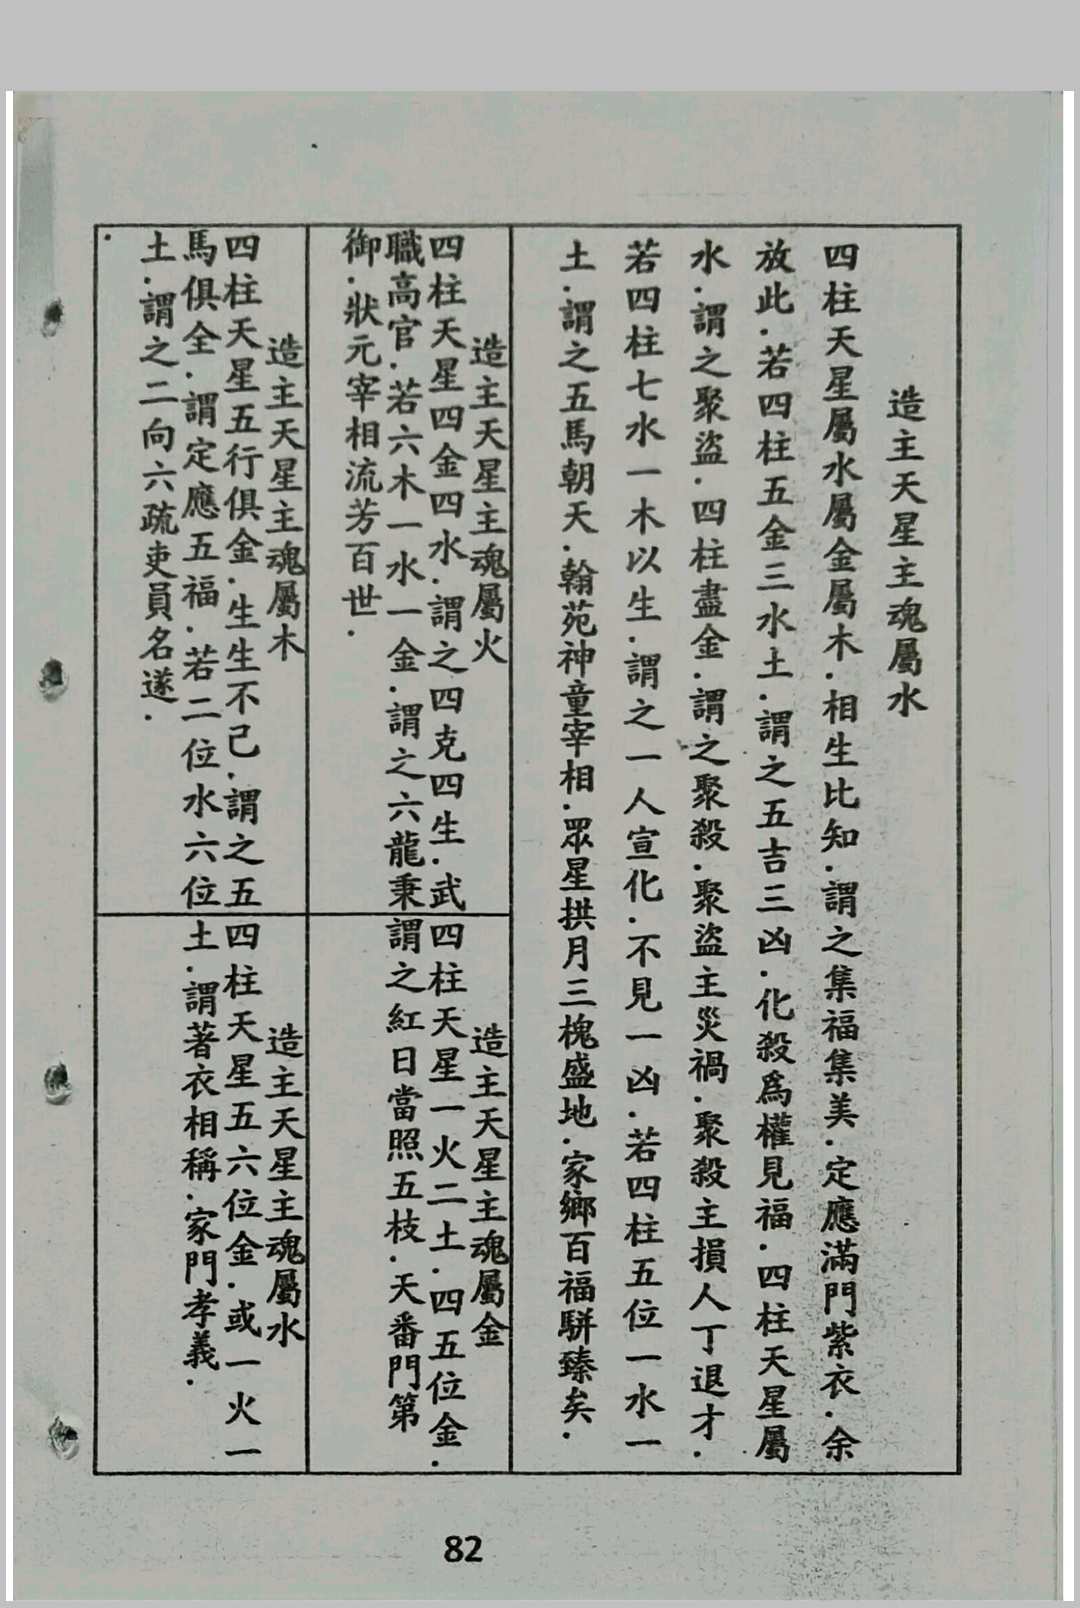 造主天星主魂屬水
四柱天星屬水屬金屬木．相生比知．謂之集福集美．定應滿門紫衣．余
放此．若四柱五金三水土．謂之五吉三凶．化殺爲權見福．四柱天星屬
水．謂之聚盜．四柱盡金．謂之聚殺．聚盜主災禍．聚殺主損人丁退才．
若四柱七水一木以生．謂之一人宣化．不見一凶．若四柱五位一水一
土．謂之五馬朝天．翰苑神童宰相．眾星拱月三槐盛地．家鄉百福駢臻矣．
造主天星主魂屬火
四柱天星四金四水．謂之四克四生．武
職高官．若六木一水一金．謂之六龍秉
御．狀元宰相流芳百世．
造主天星主魂屬金
四柱天星一火二土．四五位金．
謂之紅日當照五枝．天番門第
造主天星主魂屬木
四柱天星五行俱金．生生不己．謂之五
馬俱全．謂定應五福．若二位水六位
土．謂之二向六疏吏員名遂．
造主天星主魂屬水
四柱天星五六位金．或一火一
土．謂著衣相稱．家門孝義．
82